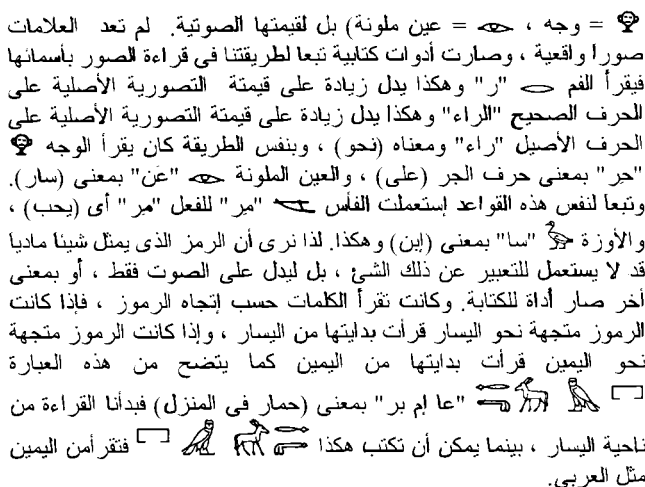 𓁷 = وجه ، 𓁹 = عين ملونة) بل لقيمتها الصوتية. لم تعد العلامات
صورا واقعية ، وصارت أدوات كتابية تبعا لطريقتنا فى قراءة الصور بأسمائها
فيقرأ الفم 𓂋 "ر" وهكذا يدل زيادة على قيمتة التصورية الأصلية على
الحرف الصحيح "الراء" وهكذا يدل زيادة على قيمتة التصورية الأصلية على
الحرف الأصيل "راء" ومعناه (نحو) ، وبنفس الطريقة كان يقرأ الوجه 𓁷
"حِر" بمعنى حرف الجر (على) ، والعين الملونة 𓁹 "عَن" بمعنى (سار).
وتبعا لنفس هذه القواعد إستعملت الفأس 𓌸 "مِر" للفعل "مِر" أى (يحب) ،
والأوزة 𓅬 "سا" بمعنى (إبن) وهكذا. لذا نرى أن الرمز الذى يمثل شيئا ماديا
قد لا يستعمل للتعبير عن ذلك الشئ ، بل ليدل على الصوت فقط ، أو بمعنى
أخر صار أداة للكتابة. وكانت تقرأ الكلمات حسب إتجاه الرموز ، فإذا كانت
الرموز متجهة نحو اليسار قرأت بدايتها من اليسار ، وإذا كانت الرموز متجهة
نحو اليمين قرأت بدايتها من اليمين كما يتضح من هذه العبارة
"عا إم بر" بمعنى (حمار فى المنزل) فبدأنا القراءة من
ناحية اليسار ، بينما يمكن أن تكتب هكذا فتقرأمن اليمين
مثل العربي.